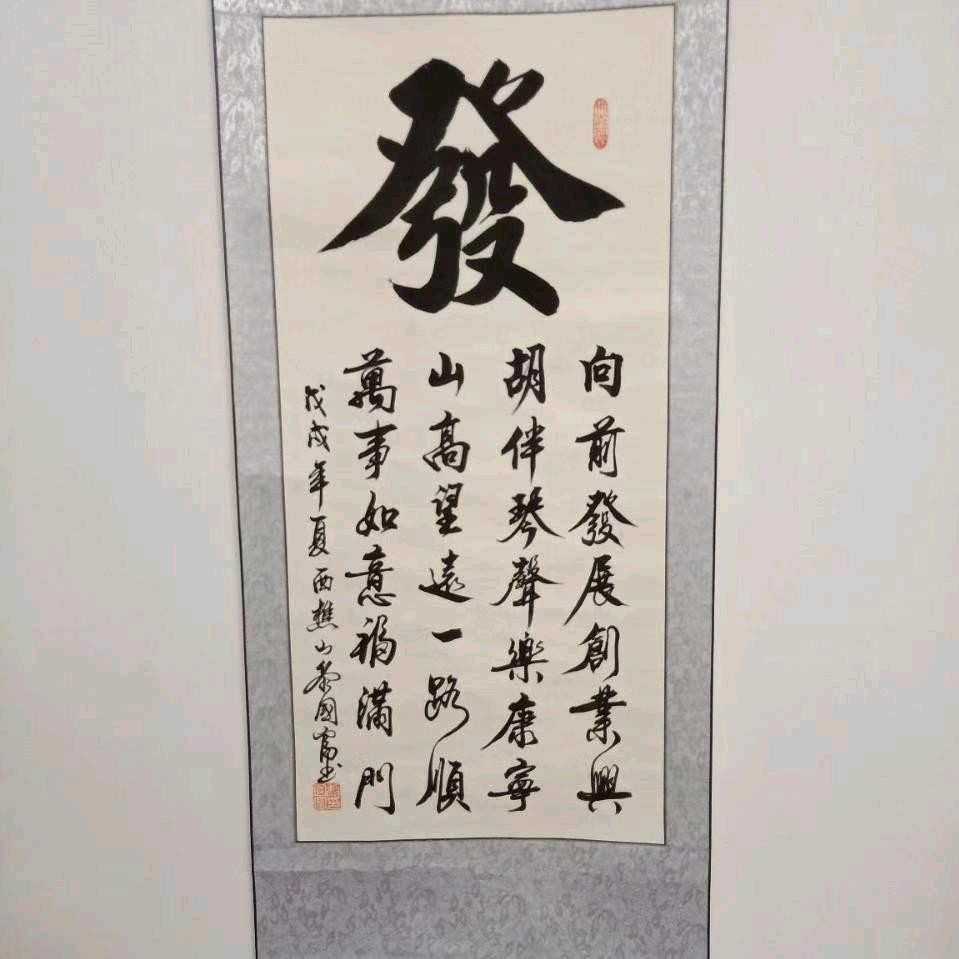 發
向前發展創業興
胡伴琴聲樂康寧
山高望遠一路順
萬事如意福滿門
戊戌年夏西樵山岑國富书